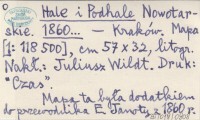 Hale i Podhale Nowotar-
skie. 1860... — Kraków. Mapa
[1: 118 500], cm 57 x 32, litogr.
Nakł.: Juliusz Wildt. Druk:
"Czas".
Mapa ta była dodatkiem
do przewodnika E. Janoty z 1860 r.